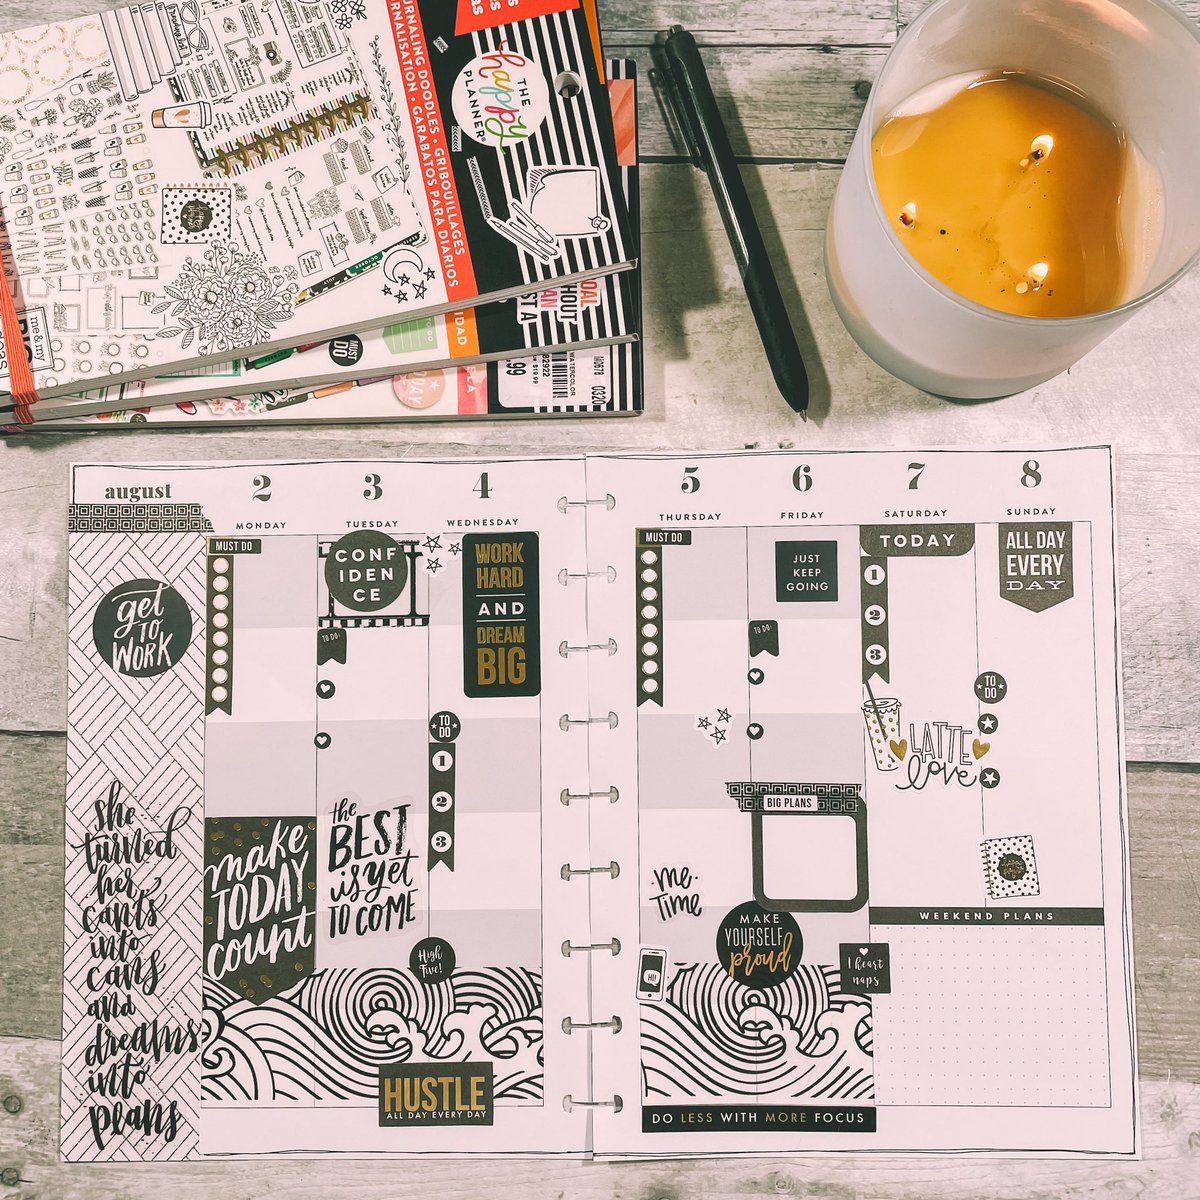 JOURNALING DOODLES • GRIBOUILLAGES
JOURNALISATION • GARABATOS PARA DIARIOS
THE
happy
PLANNER
me & my
BIG
ideas
MUST
DO
WATERCOLOR
august
2
MONDAY
3
TUESDAY
4
WEDNESDAY
5
THURSDAY
6
FRIDAY
7
SATURDAY
8
SUNDAY
get
TO
WORK
she
turned
her
can'ts
into
cans
and
dreams
into
plans
MUST DO
make
TODAY
count
CONF
IDEN
CE
TO DO:
the
BEST
is yet
TO COME
WORK
HARD
AND
DREAM
BIG
TO
DO
1
2
3
High
Five!
HUSTLE
ALL DAY EVERY DAY
MUST DO
me
TIME
HI!
JUST
KEEP
GOING
TO DO:
BIG PLANS
MAKE
YOURSELF
proud
I heart
naps
TODAY
1
2
3
LATTE
love
ALL DAY
EVERY
DAY
TO
DO
WEEKEND PLANS
DO LESS WITH MORE FOCUS